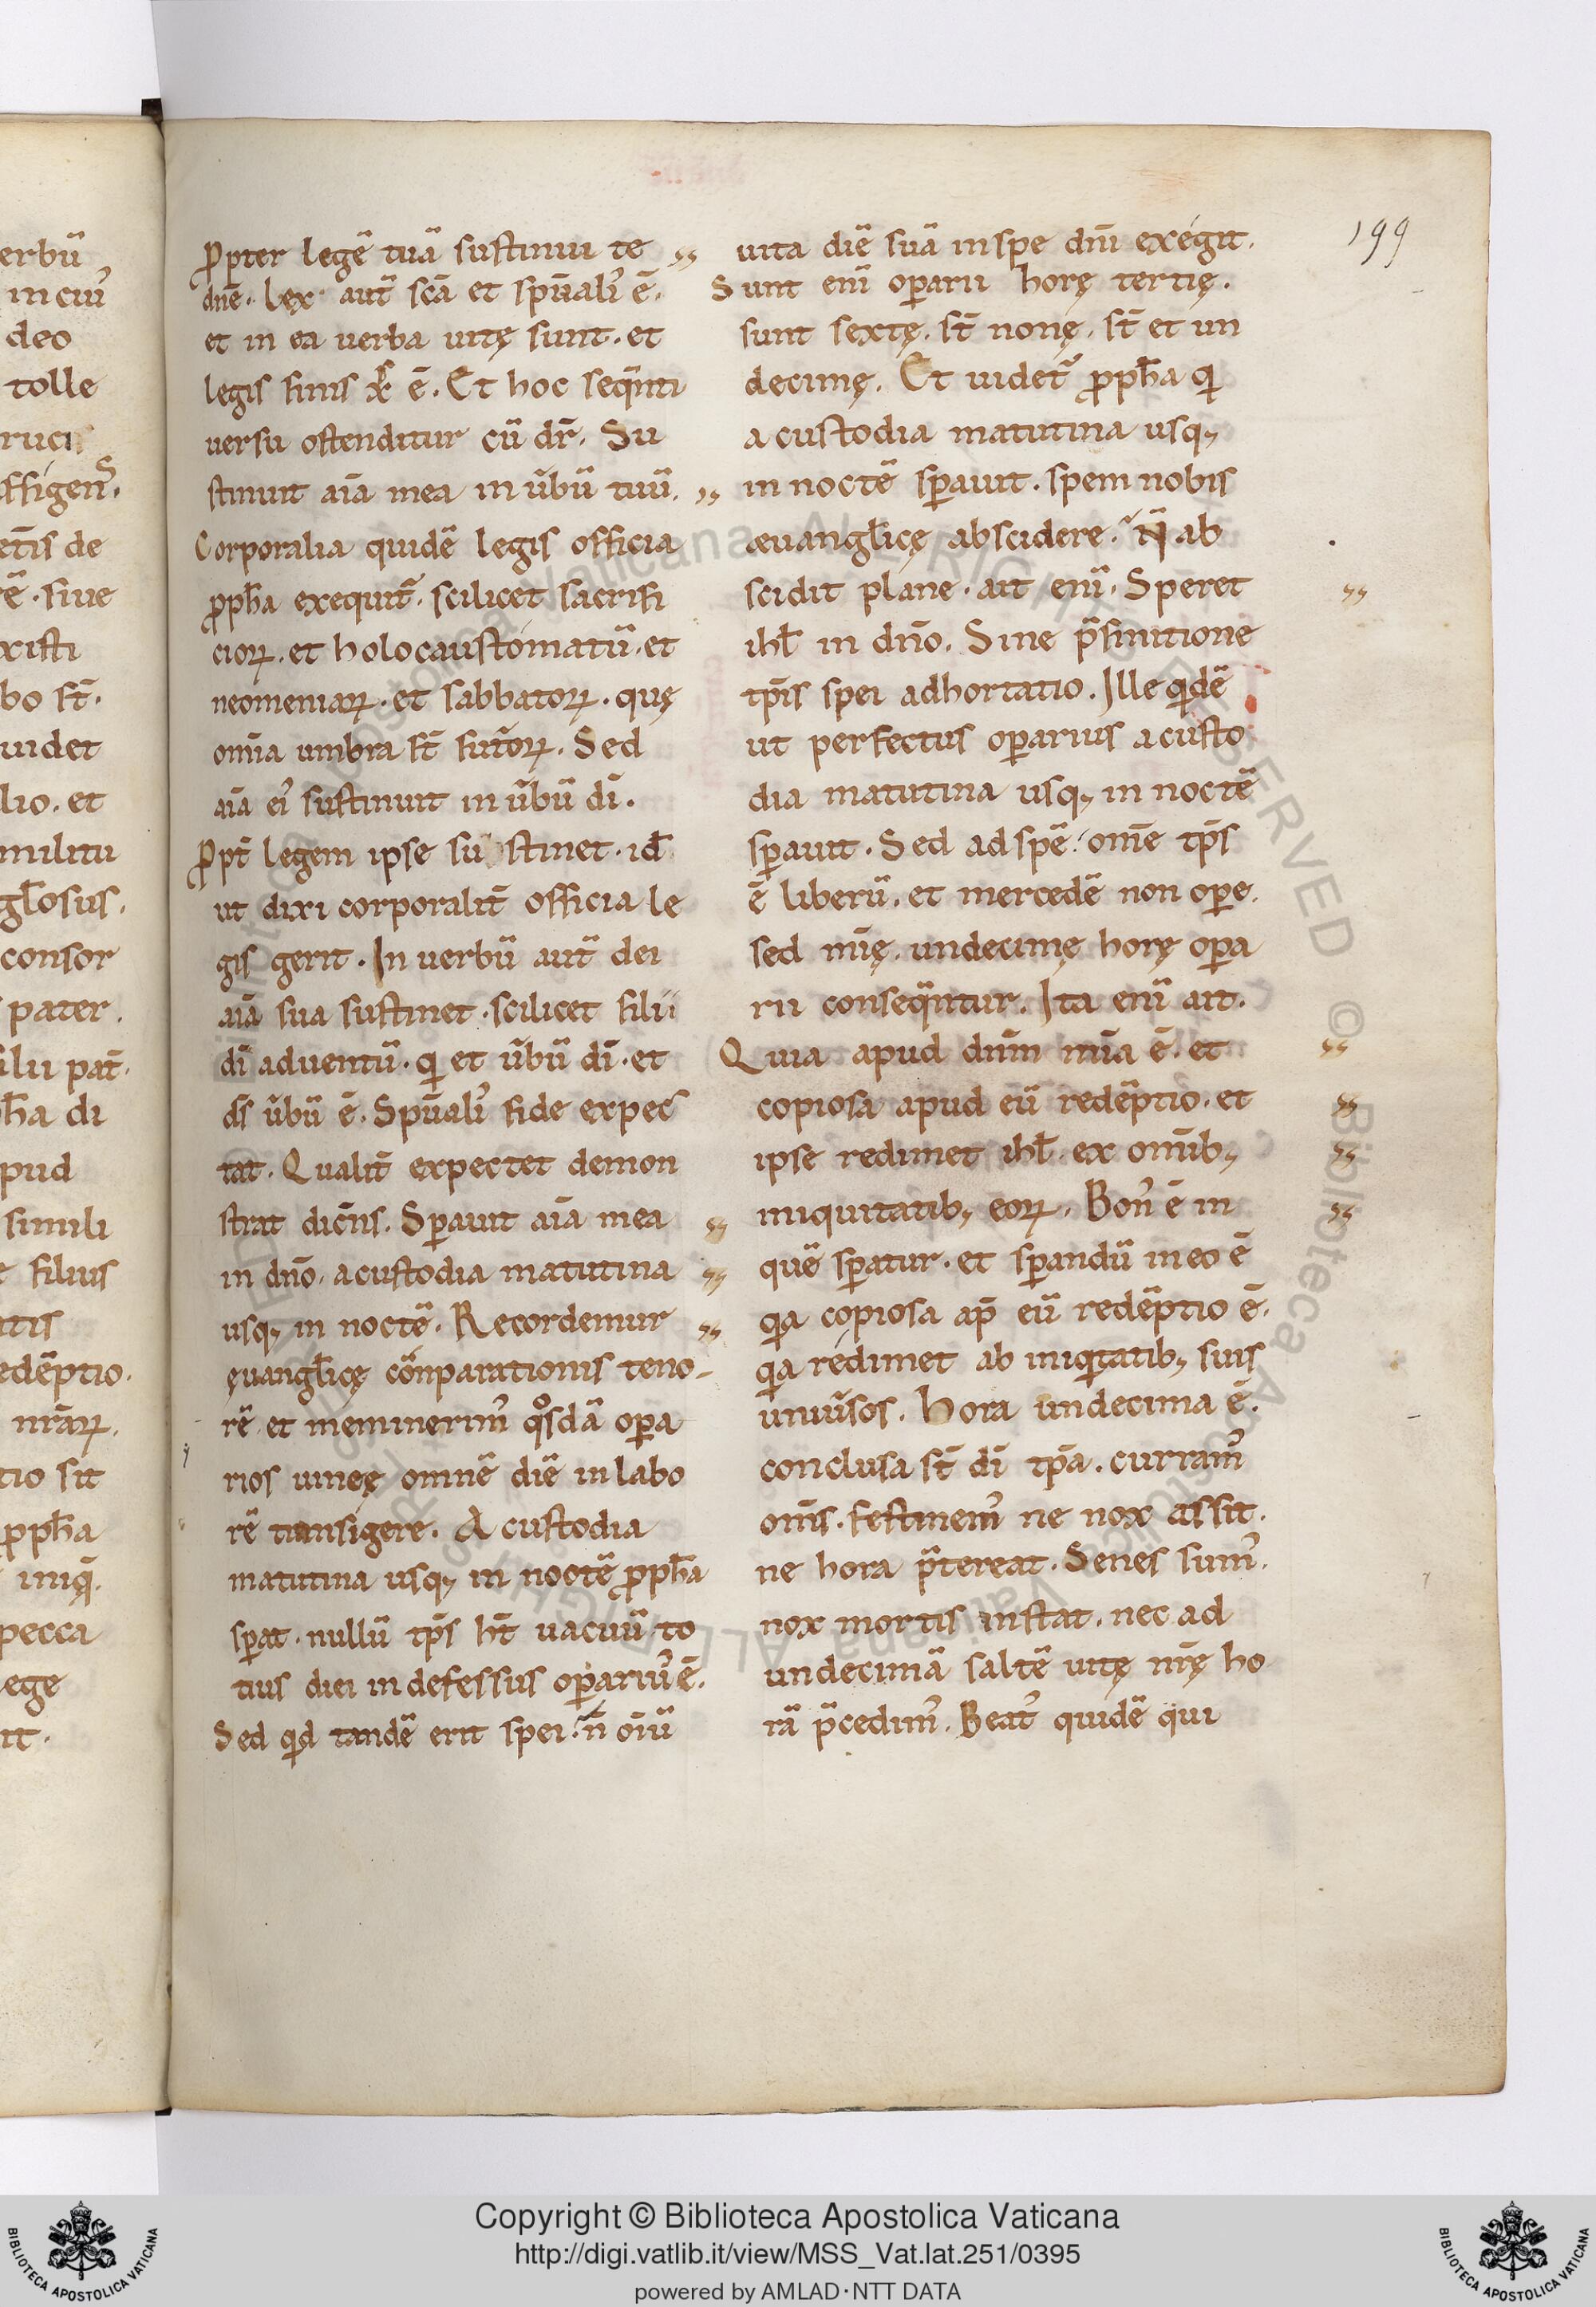 erbū
in cui᾽
deo
tolle
ruci
ffigenᷤ.
et̄is de
rē. siue
xisti
bo st̄.
uidet
lio. et
militu
gl̄osus.
consor
pater.
ilii pat̄.
h̄a di
pud
simili
filius
atis
edēptio.
nr̄aꝝ.
tio sit
ꝓph̄a
iniq̄.
pecca
lege
it.
ꝓpter legē tuā sustinui te ››
dn̄e. Lex aut̄ sc̄a et sp̄uali᾽ ē.
et in ea uerba uitę sunt. et
legis finis xp̄s ē. Et hoc seq̄nti
uersu ostenditur cū dr̄. Su
stinuit aīa mea in ūbū tuū. ››
Corporalia quidē legis officia
ꝓph̄a exequit̄. scilicet sacrifi
cioꝝ. et holocaustomatū. et
neomeniaꝝ. et sabbatoꝝ. quę
om̄ia umbra st̄ futōꝝ. Sed
aīa ei᾽ sustinuit in ūbū dī.
ꝓpt̄ legem ipse su stinet. id̄
ut dixi corporalit̄ officia le
gis gerit. In uerbū aut̄ dei
aīa sua sustinet. scilicet filii
dī aduentū. qi et ūbū dī. et
ds̄ ūbū ē. Sp̄uali᾽ fide expec
tat. Qualit̄ expectet demon
strat dicēns. Sꝑauit aīa mea ››
in dn̄o. a custodia matutina ››
usqꝫ in noctē. Recordemur ››
ęuangl̄icę cōnparationis teno-
rē. et meminerim᾽ qosdā oꝑa
rios uineę omnē diē in labo
rē transigere. A custodia
matutina usqꝫ in noctē ꝓph̄a
sꝑat. nullū tp̄s ht̄ uacuū. to
tius diei indefessus oꝑariu᾽ ē.
Sed qid tandē erit spei. n̄ oīū
199
uita diē suā in spe dn̄i exegit.
Sunt enī oꝑarii horę tertię.
sunt sextę. st̄ nonę. st̄ et un
decimę. Et uidet̄ ꝓph̄a qi
a custodia matutina usqꝫ
in noctē sꝑauit. spem nobis
æuangl̄icę abscidere. N̄ ab
scidit plane. ait enī. Speret ››
ihl̄ in dn̄o. Sine p̄finitione
tp̄is spei adhortatio. Ille qidē
ut perfectus oꝑarius a custo
dia matutina usqꝫ in noctē
sꝑauit. Sed ad spē. om̄e tp̄s
ē liberū. et mercedē non oꝑe.
sed mīę. undecimę horę oꝑa
rii conseq̄ntur. Ita enī ait.
Quia apud dn̄m mīa ē. et ››
copiosa apud eū redēptio. et ››
ipse redimet ihl̄ ex om̄ibꝫ ››
iniquitatibꝫ eoꝝ. Bon᾽ ē in ››
quē sꝑatur. et sꝑandū in eo ē
qia copiosa ap̄ eū redēptio ē.
qia redimet ab iniqitatibꝫ suis
uniūsos. Hora undecima ē.
conclusa st̄ dī tp̄a. curram᾽
om̄s. festinem᾽ ne nox assit.
ne hora p̄tereat. Senes sum᾽.
nox mortis instat. nec ad
undecimā saltē uitę nr̄ę ho
rā p̄cedim᾽. Beat᾽ quidē qui
Copyright © Biblioteca Apostolica Vaticana
http://digi.vatlib.it/view/MSS_Vat.lat.251/0395
powered by AMLAD·NTT DATA
BIBLIOTECA APOSTOLICA VATICANA
BIBLIOTECA APOSTOLICA VATICANA